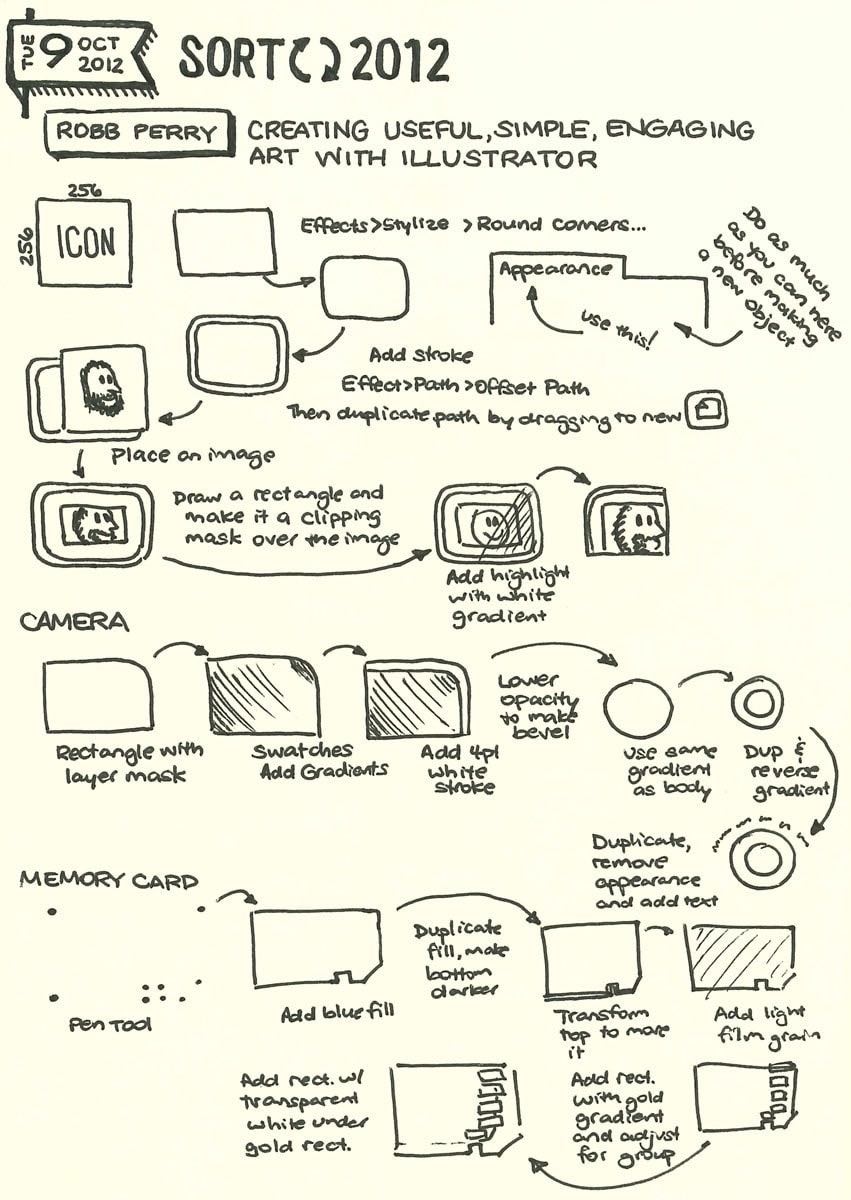 TUE 9 OCT 2012
SORT 2012
ROBB PERRY
CREATING USEFUL, SIMPLE, ENGAGING
ART WITH ILLUSTRATOR
256
256
ICON
Effects>Stylize >Round corners...
Appearance
use this!
Do as much
as you can here
before making
a new object
Add stroke
Effect>Path>Offset Path
Then duplicate path by dragging to new
Place an image
Draw a rectangle and
make it a clipping
mask over the image
Add highlight
with white
gradient
CAMERA
Rectangle with
layer mask
Swatches
Add Gradients
Add 4pt
white
stroke
Lower
opacity
to make
bevel
use same
gradient
as body
Dup &
reverse
gradient
Duplicate,
remove
appearance
and add text
MEMORY CARD
Pen Tool
Add blue fill
Duplicate
fill, make
bottom
darker
Transform
top to move
it
Add light
film grain
Add rect.
with gold
gradient
and adjust
for group
Add rect. w/
transparent
white under
gold rect.